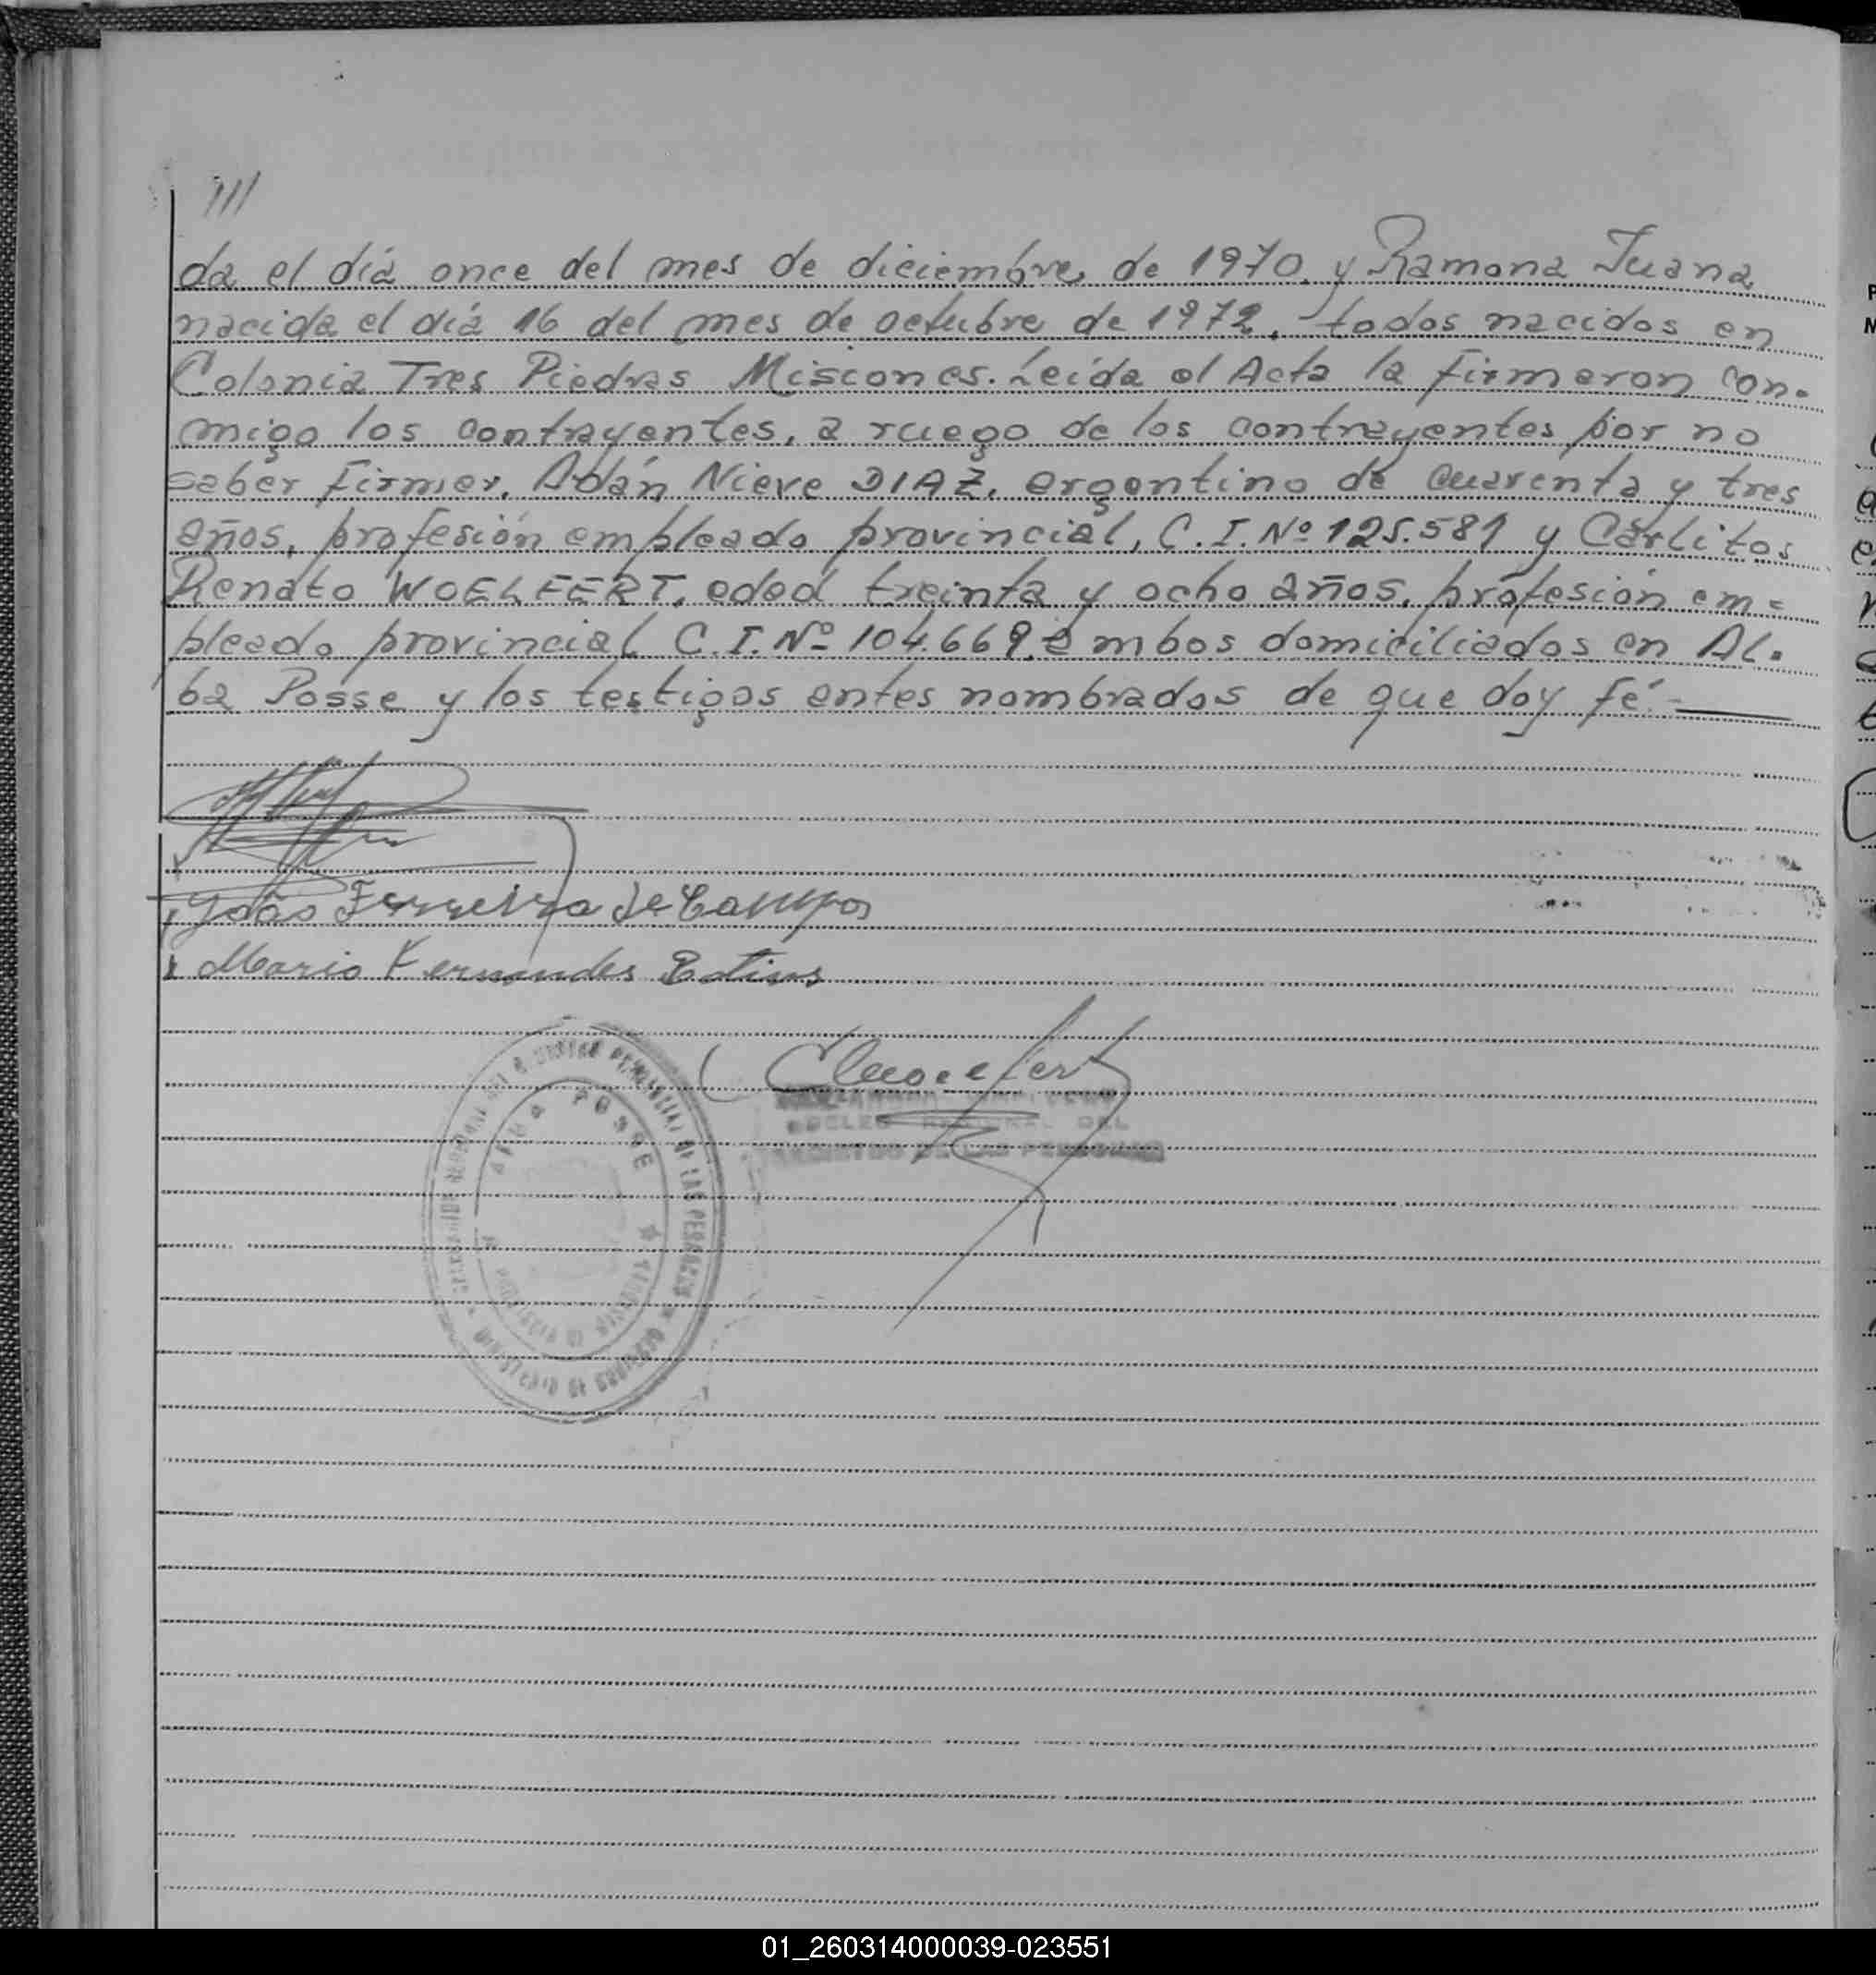 ///
da el día once del mes de diciembre, de 1970, y Ramona Juana
nacida el día 16 del mes de octubre de 1972, todos nacidos en
Colonia Tres Piedras Misiones. Leída el Acta la firmaron con-
migo los contrayentes, a ruego de los contrayentes por no
saber firmar, Adán Nieve DIAZ, argentino de cuarenta y tres
años, profesión empleado provincial, C.I.Nº 125.581 y Carlitos
Renato WOELFERT, edad treinta y ocho años, profesión em=
pleado provincial C.I.Nº 104.669, ambos domiciliados en Al-
ba Posse y los testigos antes nombrados de que doy fé.-
João Ferreira de Campos
Mario Fernandes
ALBA POSSE
DE LAS PERSONAS
DEL
REGISTRO DE LAS PERSONAS
01_260314000039-023551